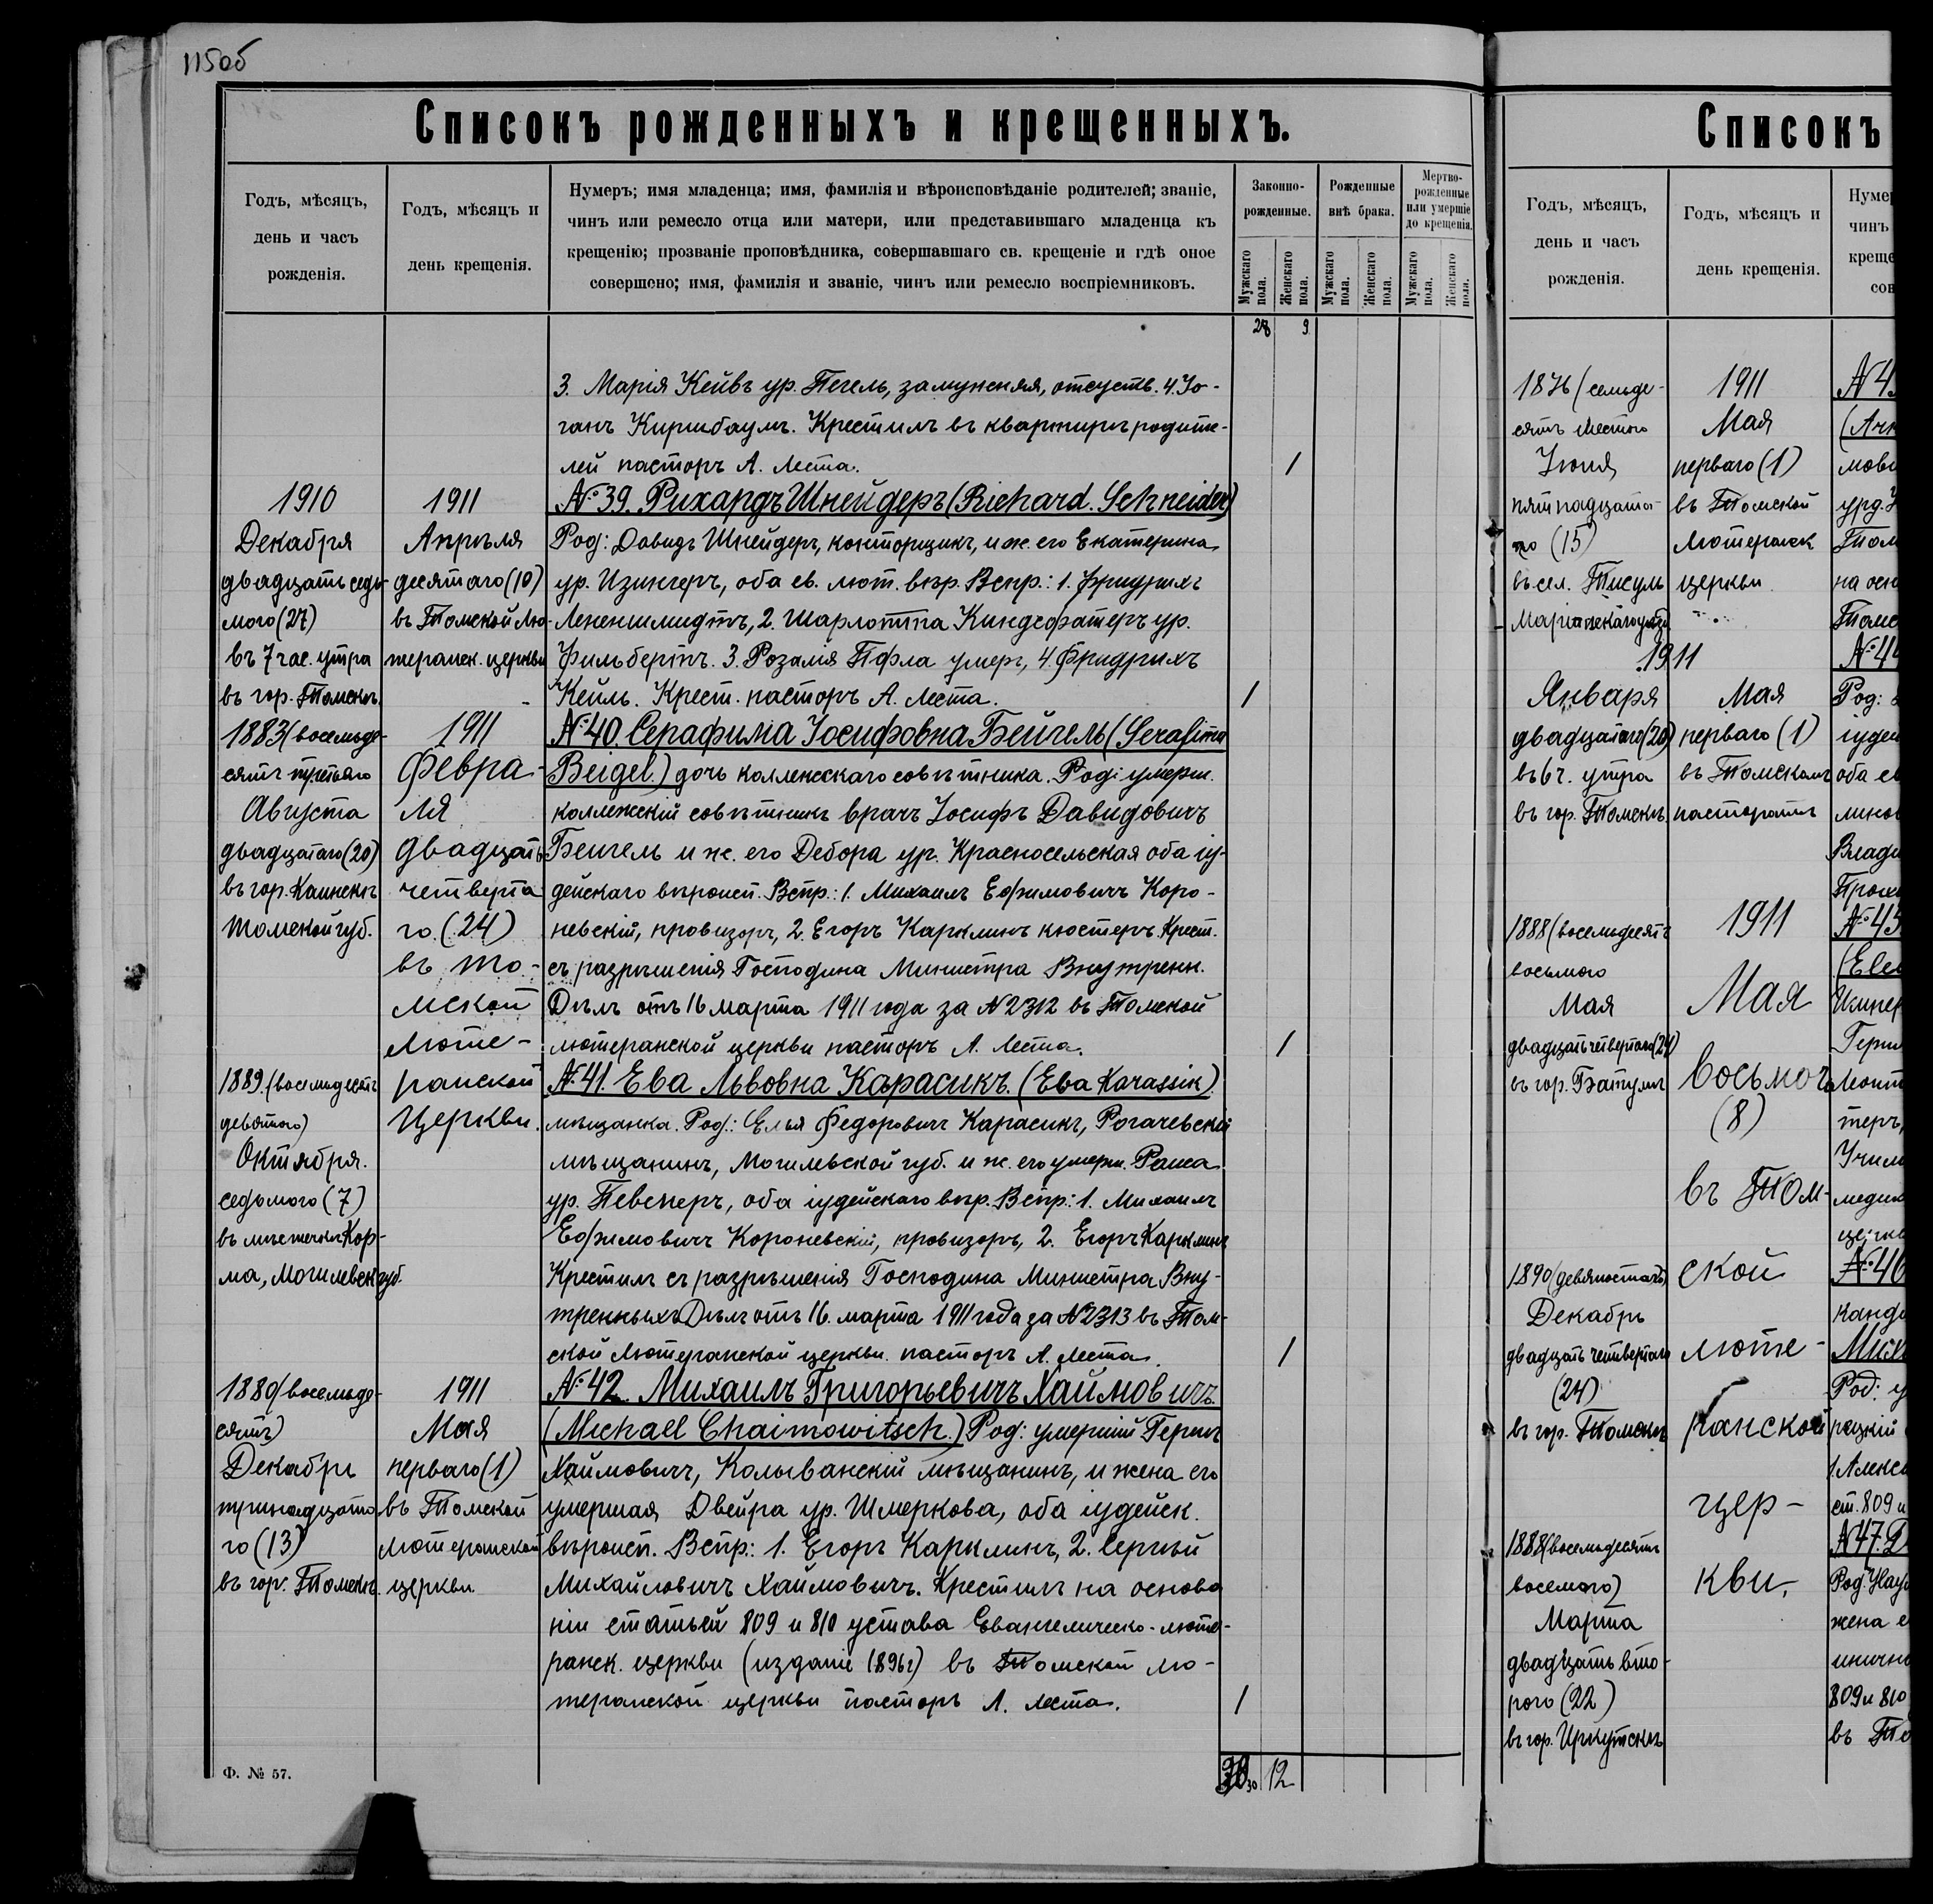 115об
Списокъ рожденныхъ и крещенныхъ.
Годъ, мѣсяцъ,
день и часъ
рожденія.
Годъ, мѣсяцъ и
день крещенія.
Нумеръ; имя младенца; имя, фамилія и вѣроисповѣданіе родителей; званіе,
чинъ или ремесло отца или матери, или представившаго младенца къ
крещенію; прозваніе проповѣдника, совершавшаго св. крещеніе и гдѣ оное
совершено; имя, фамилія и званіе, чинъ или ремесло воспріемниковъ.
Законно-
рожденные.
Рожденные
внѣ брака.
Мертво-
рожденные
или умершіе
до крещенія.
Мужскаго пола.
Женскаго пола.
Мужскаго пола.
Женскаго пола.
Мужскаго пола.
Женскаго пола.
28 9
3. Марія Кейвъ ур. Пегель, замужняя, отсутств. 4. Іо-
ганъ Киршбаумъ. Крестилъ въ квартирѣ родите-
лей пасторъ А. Леста.
1
1910
Декабря
двадцать седь-
мого (27)
въ 7 час. утра
въ гор. Томскѣ.
1911
Апрѣля
десятаго (10)
въ Томской Лю-
теранск. церкви
№ 39. Рихардъ Шнейдеръ (Richard Schneider)
Род: Давидъ Шнейдеръ, конторщикъ, и ж. его Екатерина
ур. Изингеръ, оба ев. лют. вѣр. Вспр.: 1. Фридрихъ
Лененшмидтъ, 2. Шарлотта Киндсфатеръ ур.
Фильбертъ. 3. Розалія Пфла умерг, 4. Фридрихъ
Кейль. Крест. пасторъ А. Леста.
1
1883 (восемьде-
сятъ третьяго
Августа
двадцатаго (20)
въ гор. Каинскѣ
Томской губ.
1911
Февра-
ля
двадцать
четверта
го (24)
въ То-
мской
Люте-
ранской
Церкви.
№ 40. Серафима Іосифовна Бейгель (Serafima
Beigel.) дочь коллежскаго совѣтника. Род: умерш.
коллежскій совѣтникъ врачъ Іосифъ Давидовичъ
Бейгель и ж. его Дебора ур. Красносельская оба іу-
дейскаго вѣроисп. Вспр.: 1. Михаилъ Ефимовичъ Коро-
невскій, провизоръ, 2. Егоръ Карклинъ кюстеръ. Крест.
съ разрѣшенія Господина Министра Внутренн.
Дѣлъ отъ 16 марта 1911 года за № 2312 въ Томской
лютеранской церкви пасторъ А. Леста.
1
1889 (восемьдесятъ
девятого)
Октября
седьмого (7)
въ мѣстечкѣ Кор-
ма, Могилевск губ.
№ 41. Ева Львовна Карасикъ. (Eva Karassik)
мѣщанка. Род.: Елья Федоровичъ Карасикъ, Рогачевскій
мѣщанинъ, Могилевской губ. и ж. его умерш. Раиса
ур. Певснеръ, оба іудейскаго вѣр. Вспр.: 1. Михаилъ
Ефимовичъ Короневскій, провизоръ, 2. Егоръ Карклинъ
Крестилъ съ разрѣшенія Господина Министра Вну-
тренныхъ Дѣлъ отъ 16. марта 1911 года за № 2313 въ Том-
ской Лютеранской церкви пасторъ А. Леста.
1
1880 (восемьде-
сятъ)
Декабрь
тринадцата
го (13)
въ гор. Томскѣ.
1911
Мая
перваго (1)
въ Томской
лютеранской
церкви
№ 42. Михаилъ Григорьевичъ Хаймовичъ.
(Michael Chaimowitsch.) Род: умершій Гершъ
Хаймовичъ, Колыванскій мѣщанинъ, и жена его
умершая Двейра ур. Шмеркова, оба іудейск.
вѣроисп. Вспр.: 1. Егоръ Карклинъ, 2. Сергѣй
Михайловичъ Хаймовичъ. Крестилъ на основа
ніи статьей 809 и 810 устава Евангелическо-люте-
ранск. церкви (изданіе 1896 г) въ Томской лю-
теранской церкви пасторъ А. Леста.
1
30 12
Ф. № 57.
Списокъ
Годъ, мѣсяцъ,
день и часъ
рожденія.
Годъ, мѣсяцъ и
день крещенія.
Нумер
чинъ
креще
сов
1876 (семьде-
сятъ шестого
Іюня
пятнадцата-
го (15)
въ сел. Тисуль
Маріинскаго уѣзд
1911
Мая
перваго (1)
въ Томской
Лютеранск
церкви
№ 4
(Анн
мови
урд.
Том
на осн
Томс
1911
Января
двадцатаго (20)
въ 6 ч. утра
въ гор. Томскѣ.
Мая
перваго (1)
въ Томскомъ
пасторатѣ
№ 44
Род:
іудей
оба ев
минов
Влади
Прож
1888 (восемьдесятъ
восьмого
Мая
двадцать четвертаго (24)
въ гор. Батумѣ
1911
Мая
восьмого
(8)
въ Том-
ской
люте-
ранской
цер-
кви.
№ 45
(Elec
Импер
Герш
Монт
теръ,
Учили
медиц
церкв
1890 (девяностаго)
Декабрь
двадцать четвертаго
(24)
въ гор. Томскѣ
№ 46
канди
Миха
Род: у
рецкій
1. Алекса
ст. 809 и
1888 (восемьдесятъ
восемого)
Марта
двадцать вто-
рого (22)
въ гор. Иркутскѣ
№ 47. Д
Род: Нау
жена е
инично
809 и 810
въ То